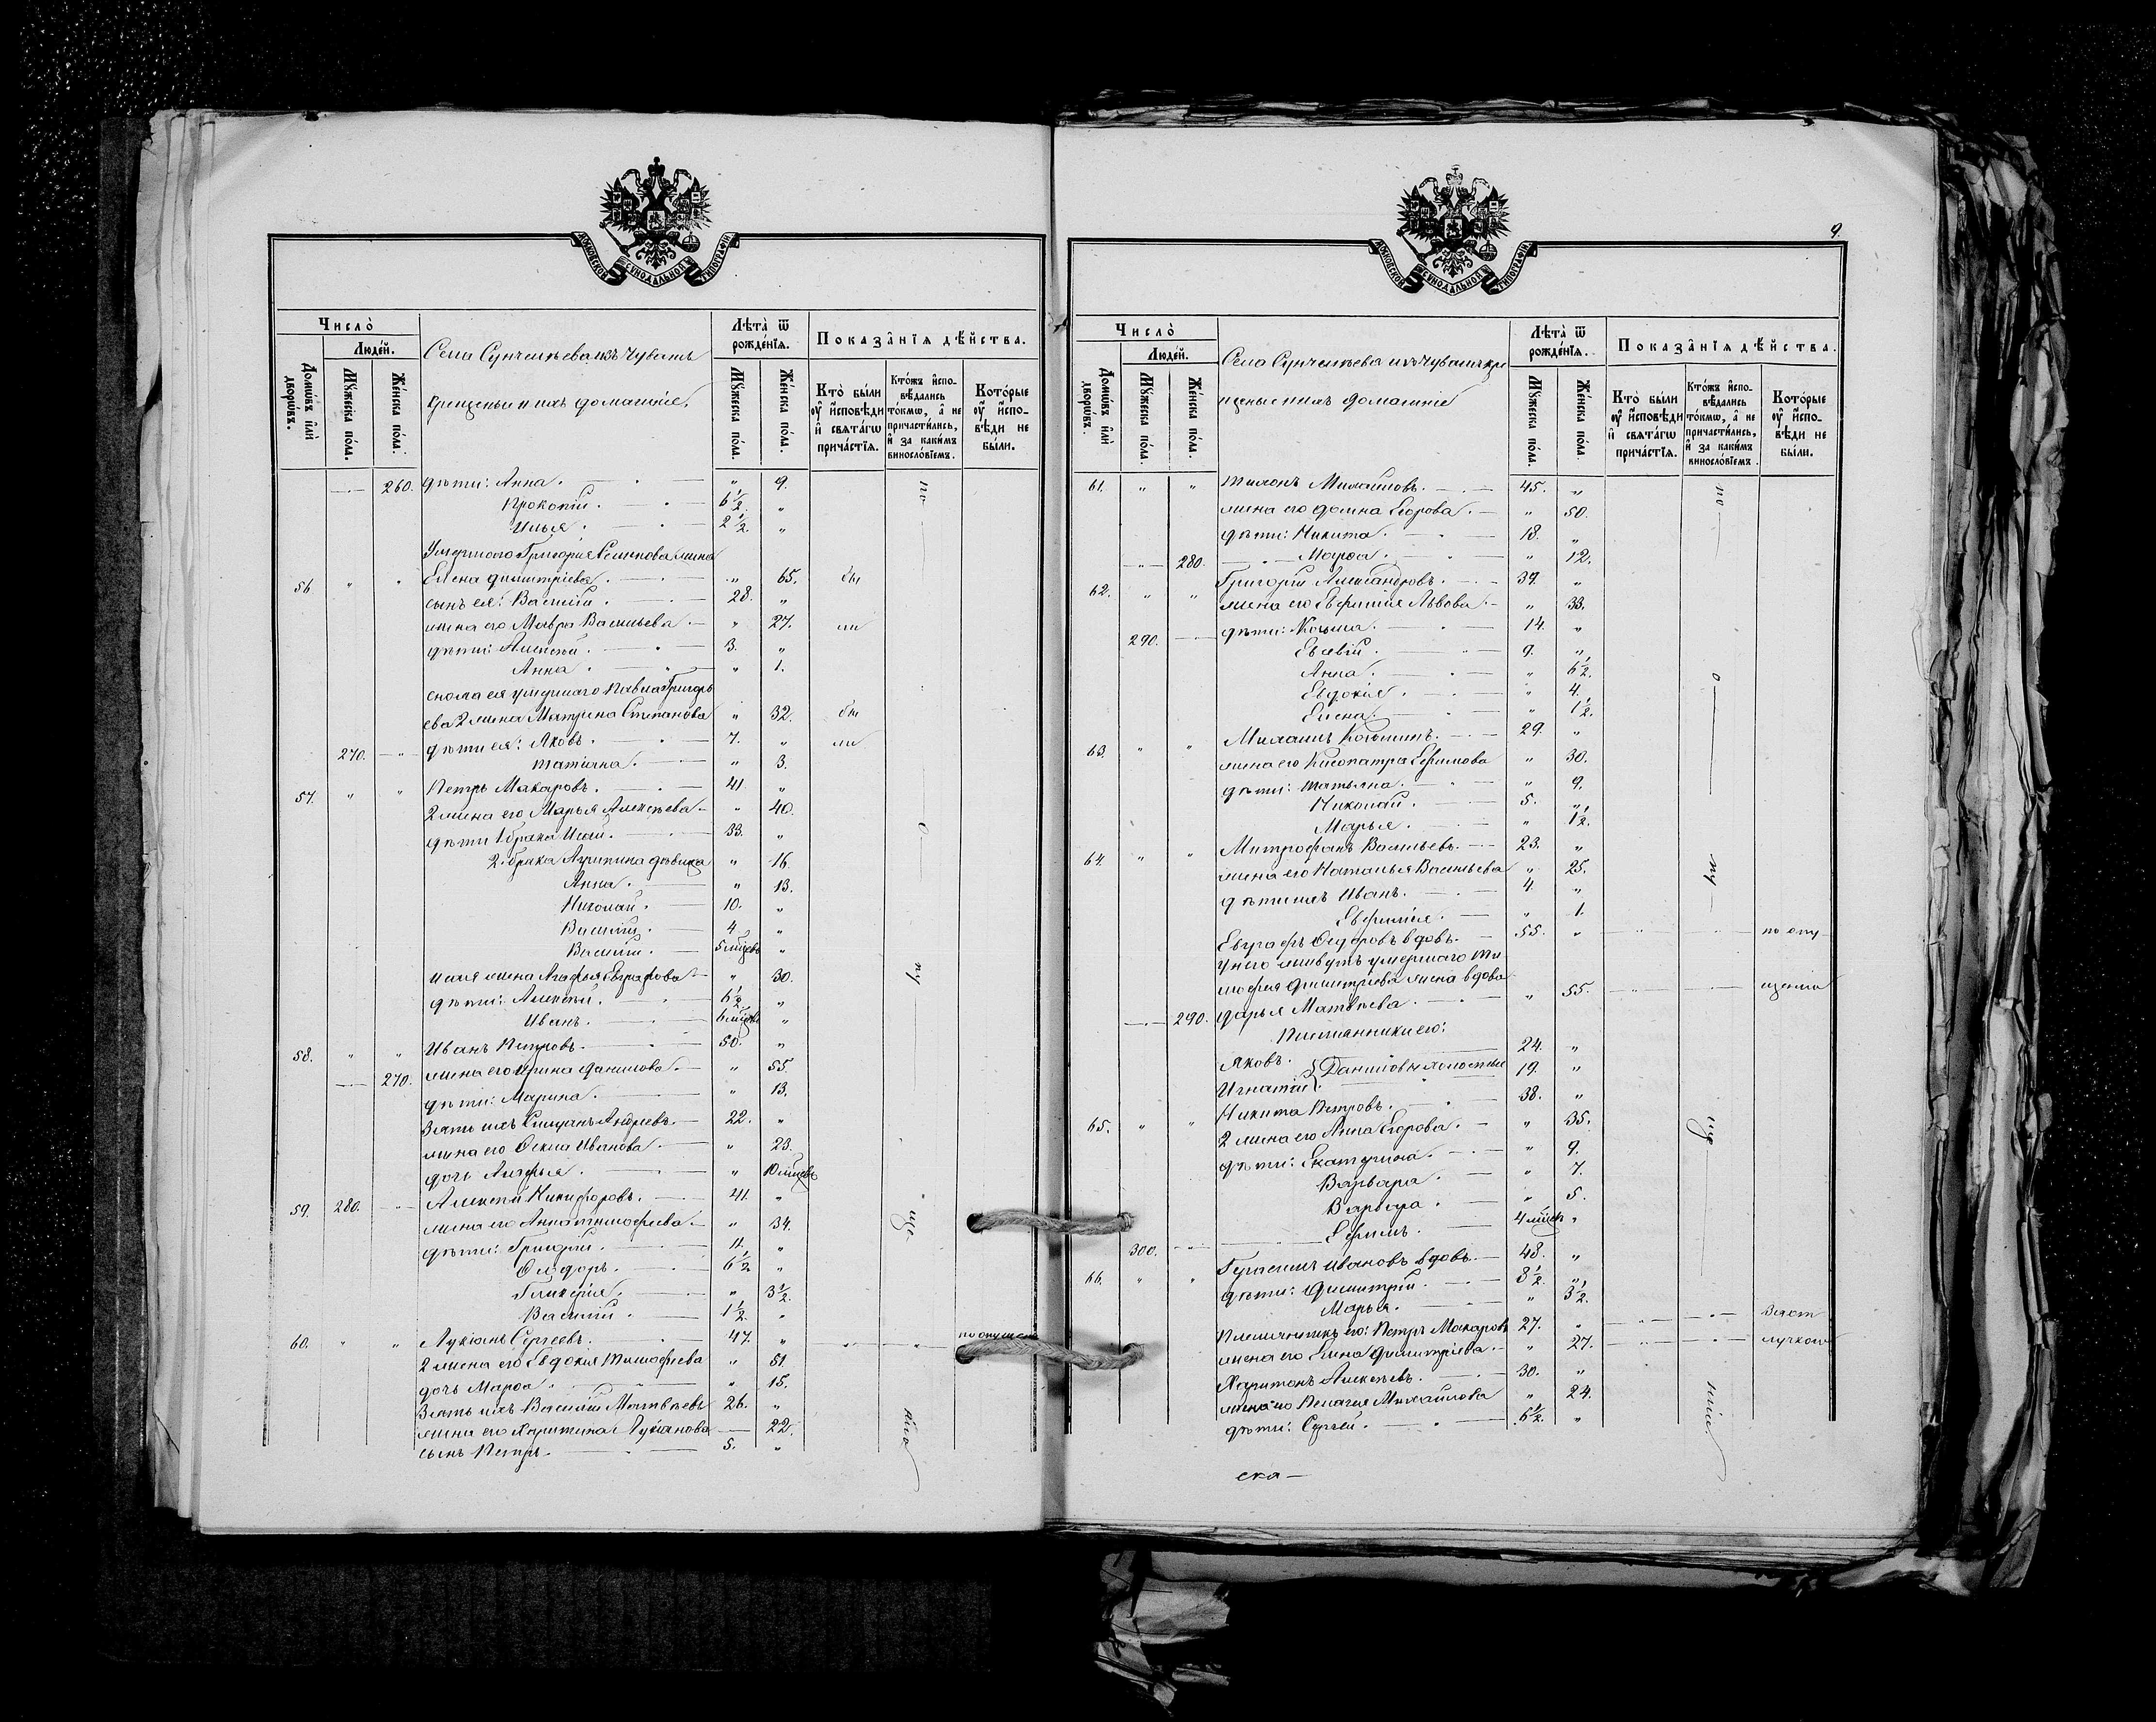 МОСКОВСКОЙ СѴНОДАЛЬНОЙ ТИПОГРАФІИ
Число̀
Люде́й.
Домѡ́въ и҆лѝ дворѡ́въ.
Мꙋ́жеска по́ла.
Же́нска по́ла.
Села Сунчелѣева изъ Чувашъ
крещеные и ихъ домашніе.
Лѣта̀ ѿ рожде́нїѧ.
Мꙋ́жеска по́ла.
Же́нска по́ла.
Показа̂нїѧ дѣ́йства.
Кто̀ бы́ли оу҆ и҆сповѣ́ди и҆ свѧта́гѡ прича́стїѧ.
Кто́жъ и҆спо- вѣ́дались то́кмѡ, а҆ не причасти́лись, и҆ за каки́мъ виносло́вїемъ.
Кото́рые оу҆ и҆спо- вѣ́ди не бы́ли.
260. дѣти: Анна. 9. по
Прокопій. 6½. „
Илья. 2½. „
Умершаго Григорія Семенова жена
56. „ „ Елена Димитріева. „ 65. бы
сынъ ея: Василій. 28. „
жена его Мавра Васильева. „ 27. ли
дѣти: Алексѣй. 3. „
Анна. „ 1.
сноха ея умершаго Павла Григорь
ева 2 жена Матрина Степанова „ 32. бы
270. дѣти ея: Яковъ. 7. „ ли
Татіана. „ 3.
57. „ „ Петръ Макаровъ. 41. „
2 жена его Марья Алексѣева. „ 40.
дѣти 1 брака Исай. 33. „ о
2. брака Агрипина дѣвица „ 16
Анна. „ 13.
Николай. 10. „
Василій. 4. „
Василій. 5 мѣсецъ „
Исая жена Агафья Евграфова „ 30. пу
дѣти: Алексѣй. 6½ „
Иванъ. 6 мѣсецъ „
58. „ „ Иванъ Петровъ. 50. „
270. жена его Ирина Данилова. „ 55.
дѣти: Марина. „ 13.
Зять ихъ Андреевъ. 22. „
жена его Ѳекла Иванова. „ 23.
дочь Агафья. „ 10 мѣсецъ
59. 280. Алексѣй Никифоровъ. 41. „
жена его Анна Тимофеева. „ 34. ще
дѣти: Григорій. 11. „
Ѳедоръ. 6½ „
Гликерія. „ 3½.
Василій. 1½. „
60. „ „ Лукіанъ Сергеевъ. 47. „ по опущенію
2 жена его Евдокія Тимофеева „ 51.
дочь Марѳа. „ 15.
Зять ихъ Василій Матвѣевъ 26. „
жена его Харитина Лукіанова 22. нію
сынъ Петръ. 5. „
9.
Число̀
Люде́й.
Домѡ́въ и҆лѝ дворѡ́въ.
Мꙋ́жеска по́ла.
Же́нска по́ла.
Села Сунчелѣева изъ Чувашъ кре
щеные и ихъ домашніе
Лѣта̀ ѿ рожде́нїѧ.
Мꙋ́жеска по́ла.
Же́нска по́ла.
Показа̂нїѧ дѣ́йства.
Кто̀ бы́ли оу҆ и҆сповѣ́ди и҆ свѧта́гѡ прича́стїѧ.
Кто́жъ и҆спо- вѣ́дались то́кмѡ, а҆ не причасти́лись, и҆ за каки́мъ виносло́вїемъ.
Кото́рые оу҆ и҆спо- вѣ́ди не бы́ли.
61. „ „ Тихонъ Михайловъ. 45. „ по
жена его Домна Егорова. „ 50.
дѣти: Никита. 13. „
280. Марѳа. „ 12.
62. „ „ Григорій Александровъ. 39. „
жена его Евфимія Львова. „ 33.
290. дѣти: Козьма. 14. „
Евсевій. 9. „
Анна. „ 6½. о
Евдокія. „ 4.
Елена. „ 1½.
63. „ „ Михаилъ Козминъ. 29. „
жена его Клеопатра Ефимова „ 30.
дѣти: Татьяна. „ 9.
Николай. 5. „
Марья. „ 1½.
64. „ „ Митрофанъ Васильевъ. 23. „
жена его Наталья Васильева „ 25. пу
дѣти ихъ Иванъ. 4. „
Евфимія. „ 1.
Евграфъ Ѳедоровъ вдовъ. 55. „ по опу
У него живутъ умершаго Ти
мофея Димитріева жена вдова
290. Дарья Матвѣева. „ 55. щенію
Племянники его:
Яковъ. } 24. „
Игнатій } Даниловы холостые 19. „
65. „ „ Никита Петровъ. 38. „
2 жена его Анна Егорова. „ 35. ще
дѣти: Екатерина. „ 9.
Варвара. „ 7.
Варвара. „ 5.
300. Ефимъ. 4 мѣсец „
66. „ „ Герасимъ Ивановъ вдовъ. 48. „
дѣти: Димитрій. 8½. „
Марья. „ 3½.
Племянникъ его: Петръ Макаровъ 27. „
жена его Елена Димитріева. „ 27.
Харитонъ Алексѣевъ. 30. „
жена его Пелагея Михайлова „ 24. нію
дѣти: Сергей. 6½. „
ска—